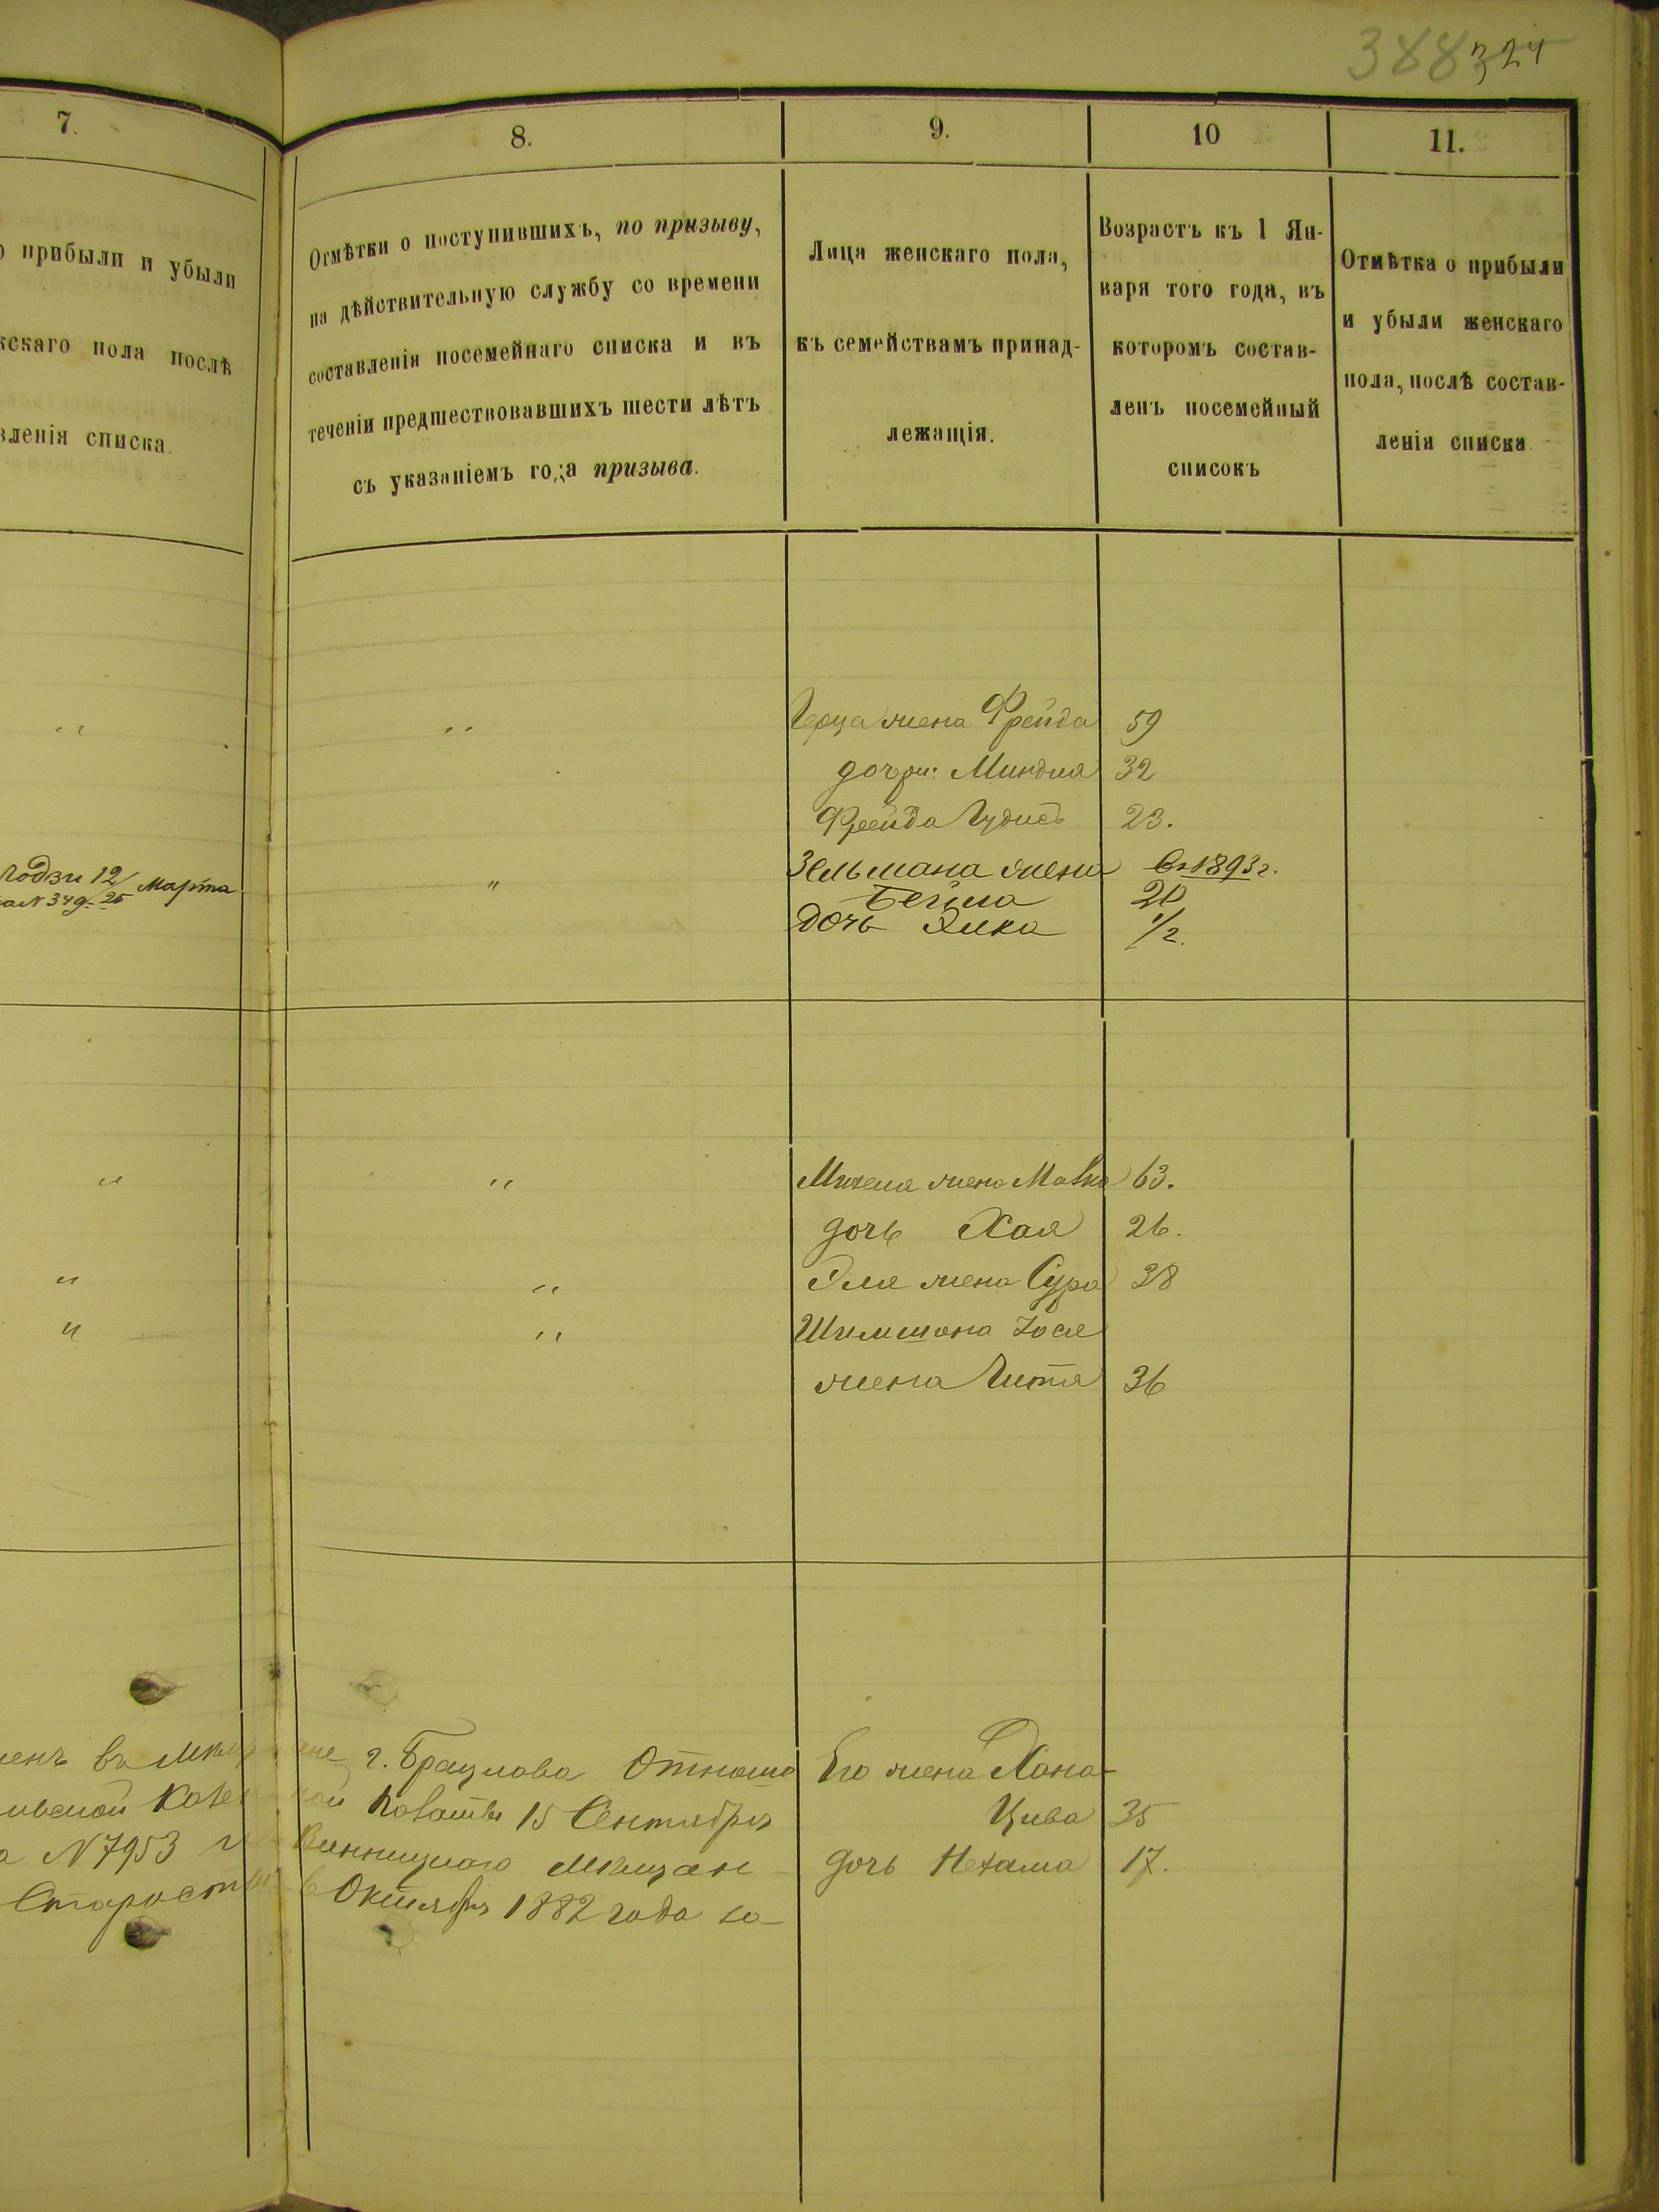 388 324
7.
8.
9.
10
11.
прибыли и убыли
жскаго пола послѣ
вленія списка.
Отмѣтки о поступившихъ, по призыву,
на дѣйствительную службу со времени
составленія посемейнаго списка и въ
теченіи предшествовавшихъ шести лѣтъ
съ указаніемъ года призыва.
Лица женскаго пола,
къ семействамъ принад-
лежащія.
Возрастъ къ 1 Ян-
варя того года, въ
которомъ состав-
ленъ посемейный
списокъ
Отмѣтка о прибыли
и убыли женскаго
пола, послѣ состав-
ленія списка
" " Герца жена Фрейда 59
дочери: Миндля 32
Фрейда Гудись 23.
Лодзи 12/25 Марта
" Зельмана жена въ 1893 г.
Бейла 20
дочь Элка 1/2.
" " Михеля жена Малка 63.
дочь Хая 26.
" " Эля жена Сура 38
" " Шимшона Іося
жена Гитля 36
г. Брацлава Отноше Его жена Хана-
Палаты 15 Сентября Цива 35
№ 7953 и Винницкаго Мѣщан дочь Нехама 17.
Старосты Октября 1882 года за